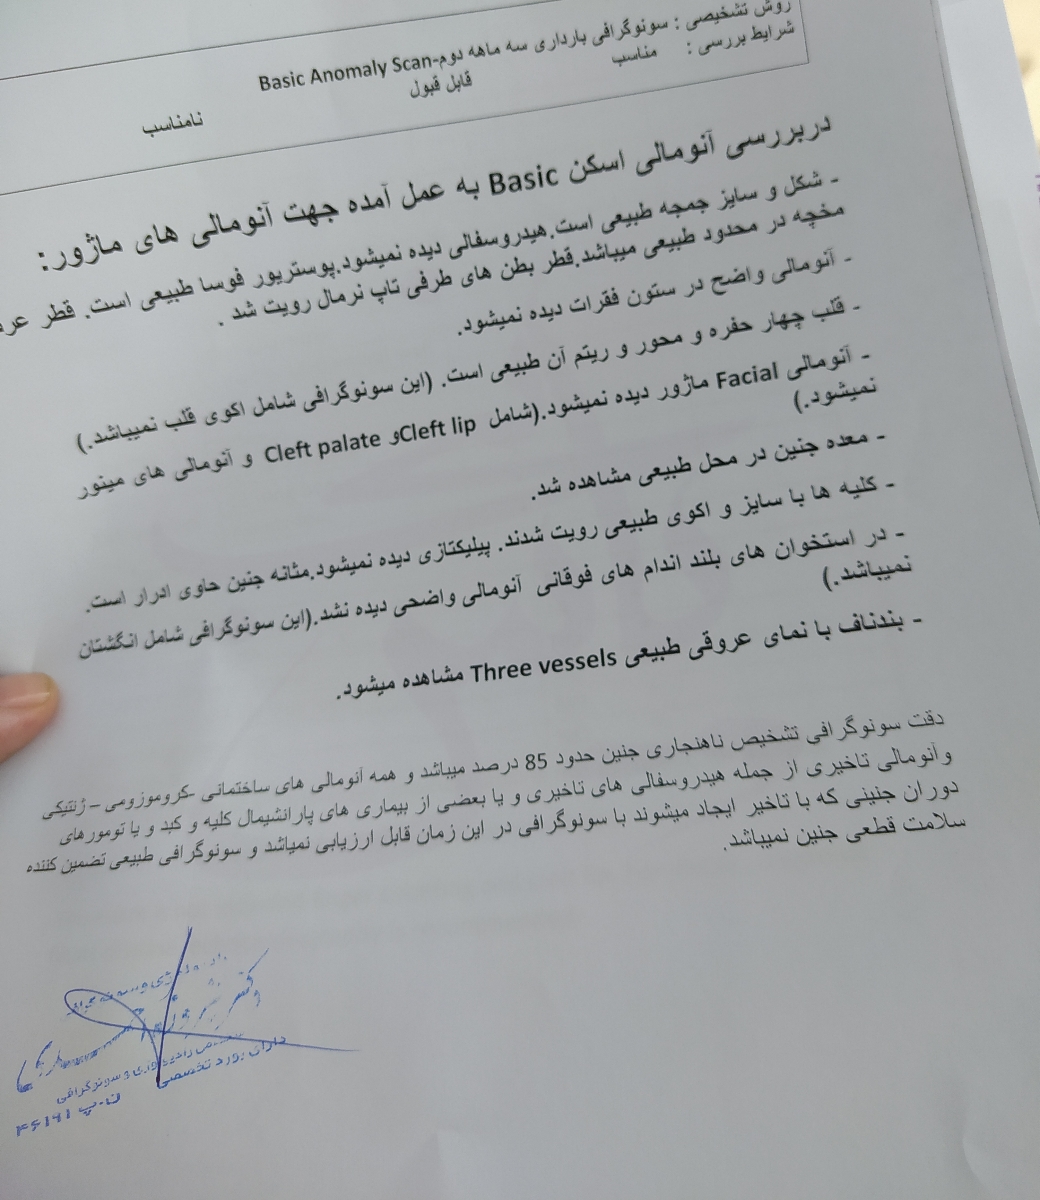 روش تشخیصی : سونوگرافی بارداری سه ماهه دوم-Basic Anomaly Scan
شرایط بررسی : مناسب قابل قبول نامناسب
دربررسی آنومالی اسکن Basic به عمل آمده جهت آنومالی های ماژور:
- شکل و سایز جمجه طبیعی است.هیدروسفالی دیده نمیشود.پوستریور فوسا طبیعی است. قطر
مخچه در محدود طبیعی میباشد.قطر بطن های طرفی تاپ نرمال رویت شد .
- آنومالی واضح در ستون فقرات دیده نمیشود.
- قلب چهار حفره و محور و ریتم آن طبیعی است. (این سونوگرافی شامل اکوی قلب نمیباشد.)
- آنومالی Facial ماژور دیده نمیشود.(شامل Cleft lip و Cleft palate و آنومالی های مینور
نمیشود.)
- معده جنین در محل طبیعی مشاهده شد.
- کلیه ها با سایز و اکوی طبیعی رویت شدند. پیلیکتازی دیده نمیشود.مثانه جنین حاوی ادرار است.
- در استخوان های بلند اندام های فوقانی آنومالی واضحی دیده نشد.(این سونوگرافی شامل انگشتان
نمیباشد.)
- بندناف با نمای عروقی طبیعی Three vessels مشاهده میشود.
دقت سونوگرافی تشخیص ناهنجاری جنین حدود 85 درصد میباشد و همه آنومالی های ساختمانی -کروموزومی – ژنتیکی
وآنومالی تاخیری از جمله هیدروسفالی های تاخیری و یا بعضی از بیماری های پارانشیمال کلیه و کبد و یا تومورهای
دوران جنینی که با تاخیر ایجاد میشوند با سونوگرافی در این زمان قابل ارزیابی نمیاشد و سونوگرافی طبیعی تضمین کننده
سلامت قطعی جنین نمیباشد.
و سونوگرافی
دارای بورد تخصصی
ن.پ ۴۶۱۹۱